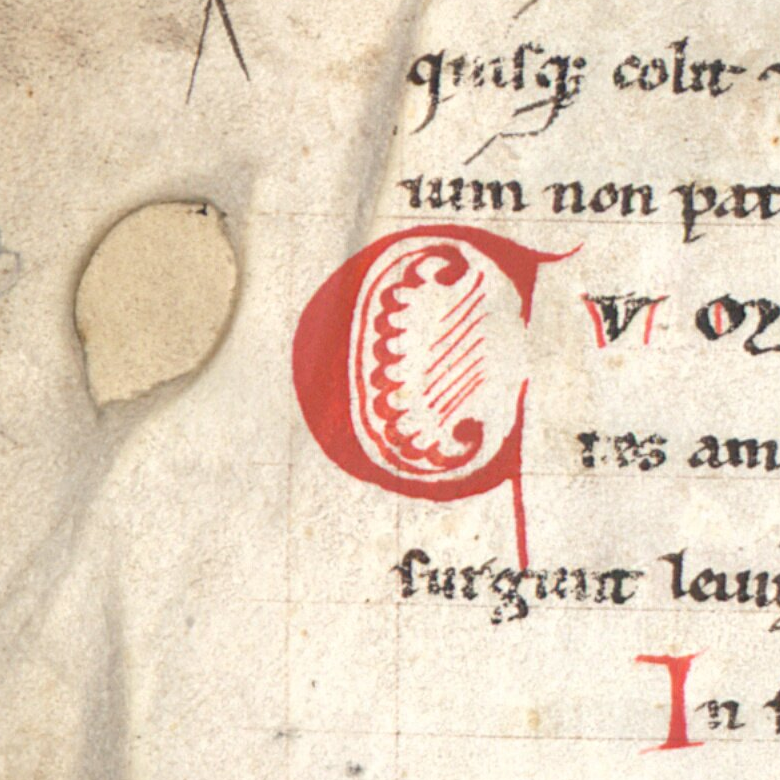 quisq; colit
uum non pat
CV OY
tes am
surgunt leui
In